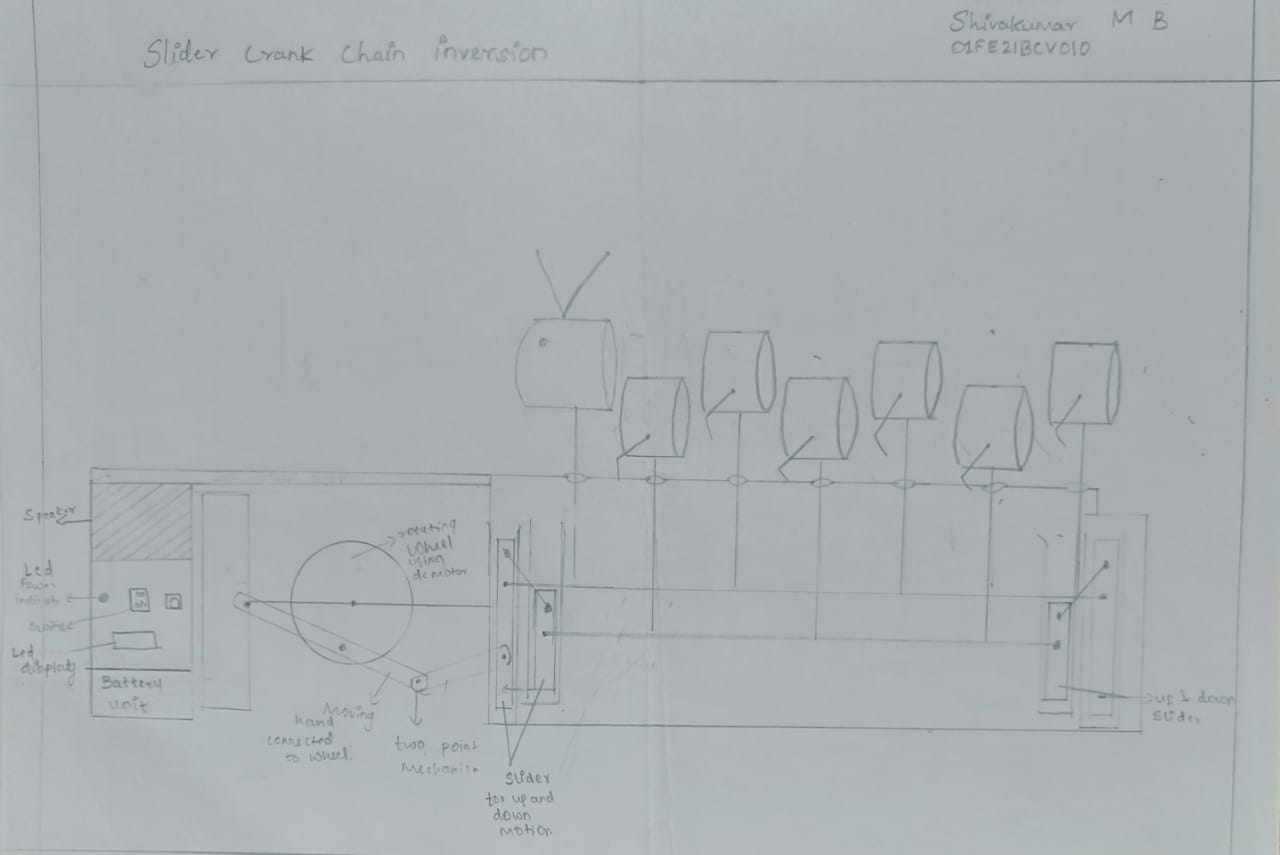 Slider Crank Chain inversion
Shivakumar M B
01FE21BCV010
Speaker
Led
Power
indicator
Led
display
Battery
unit
rotating
wheel
using
dc motor
Moving
hand
connected
to wheel
two point
Mechanism
Slider
for up and
down
motion
up & down
slider